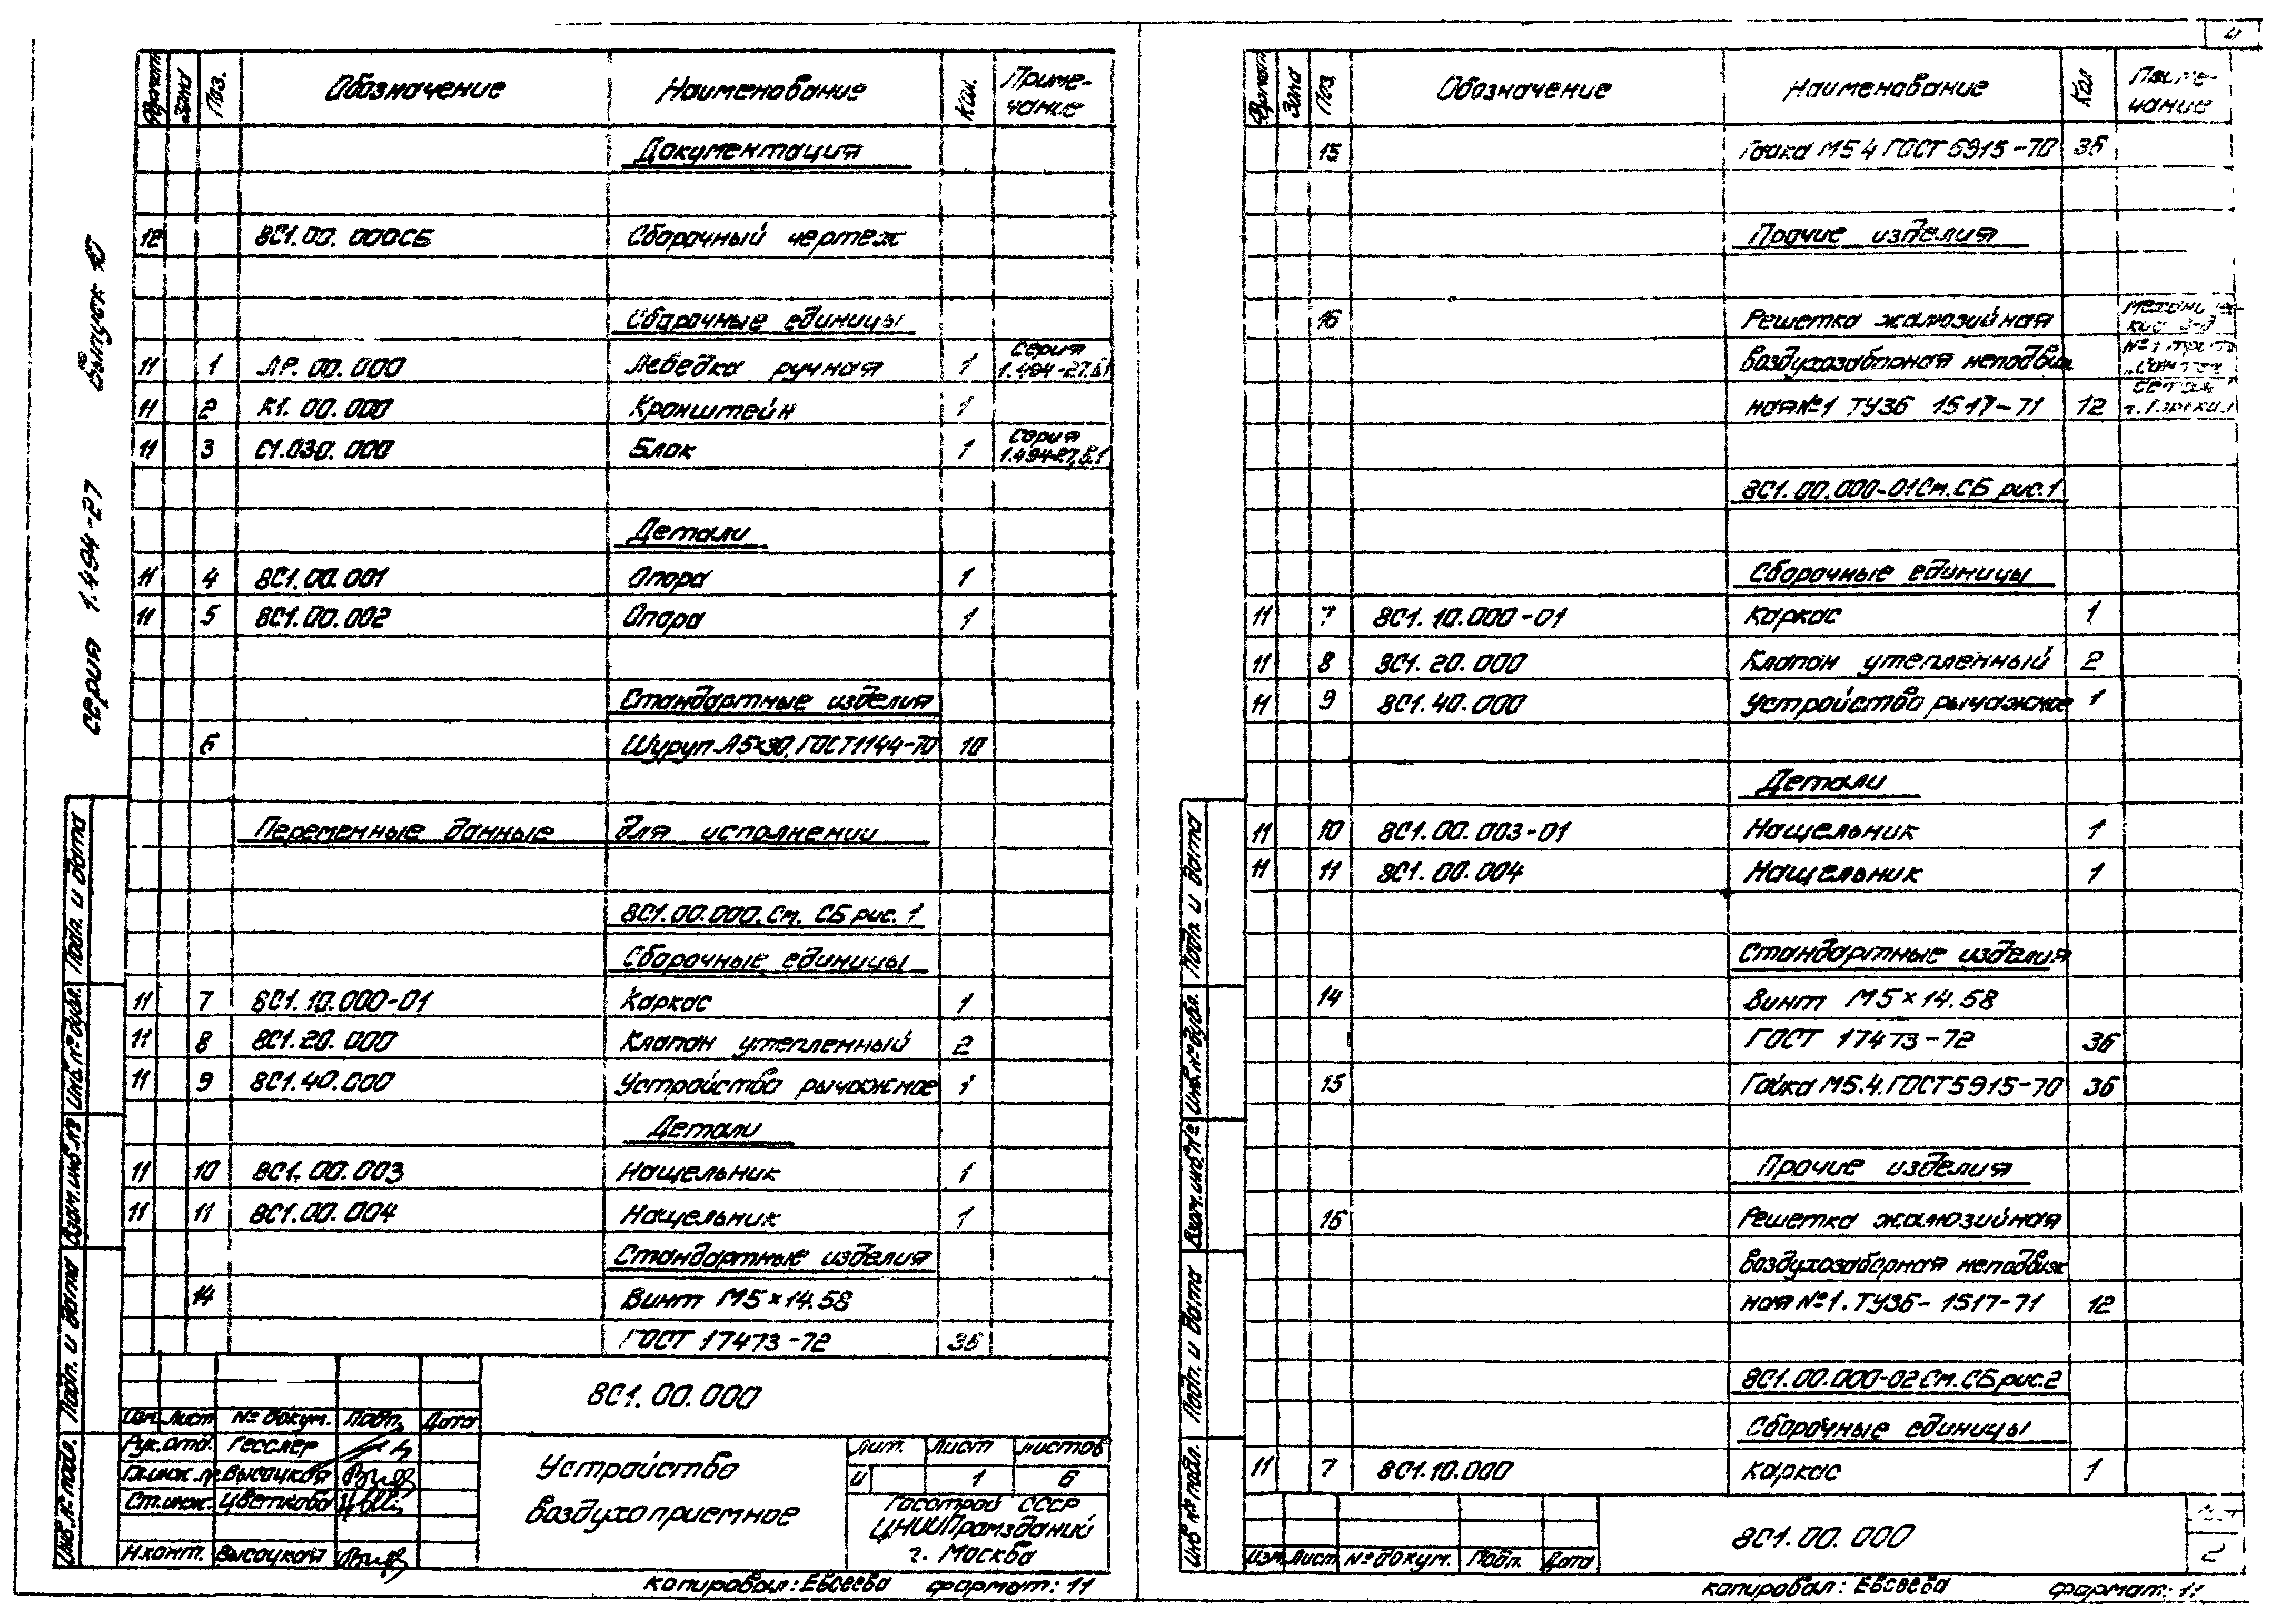 4
серия 1.494-27 Выпуск 10
Формат Зона Поз. Обозначение Наименование Кол. Приме-
чание
Документация
12 8С1.00.000СБ Сборочный чертеж
Сборочные единицы
11 1 ЛР.00.000 Лебедка ручная 1 Серия
1.494-27.в1
11 2 К1.00.000 Кронштейн 1
11 3 С1.030.000 Блок 1 Серия
1.494-27,в.1
Детали
11 4 8С1.00.001 Опора 1
11 5 8С1.00.002 Опора 1
Стандартные изделия
6 Шуруп А5×30.ГОСТ1144-70 10
Переменные данные для исполнений
8С1.00.000.См. СБ рис. 1
Сборочные единицы
11 7 8С1.10.000-01 Каркас 1
11 8 8С1.20.000 Клапан утепленный 2
11 9 8С1.40.000 Устройство рычажное 1
Детали
11 10 8С1.00.003 Нащельник 1
11 11 8С1.00.004 Нащельник 1
Стандартные изделия
14 Винт М5×14.58
ГОСТ 17473-72 36
8С1.00.000
Изм. Лист № докум. Подп. Дата
Рук.отд. Гесслер
Гл.инж.п Высоцкая
Ст.инж. Цветкова
Н.конт. Высоцкая
Устройство
воздухоприемное
Лит. Лист Листов
И 1 6
Госстрой СССР
ЦНИИПромзданий
г. Москва
копировал: Евсеева формат: 11
Инв.№ подл. Подп. и дата Взам.инв.№ Инв.№ дубл. Подп. и дата
Формат Зона Поз. Обозначение Наименование Кол Приме-
чание
15 Гайка М5.4 ГОСТ 5915-70 36
Прочие изделия
16 Решетка жалюзийная
воздухозаборная неподвиж
ная№1 ТУ36 1517-71 12
8С1.00.000-01См.СБ рис.1
Сборочные единицы
11 7 8С1.10.000-01 Каркас 1
11 8 8С1.20.000 Клапан утепленный 2
11 9 8С1.40.000 Устройство рычажное 1
Детали
11 10 8С1.00.003-01 Нащельник 1
11 11 8С1.00.004 Нащельник 1
Стандартные изделия
14 Винт М5×14.58
ГОСТ 17473-72 36
15 Гайка М5.4.ГОСТ5915-70 36
Прочие изделия
16 Решетка жалюзийная
воздухозаборная неподвиж
ная №1.ТУ36-1517-71 12
8С1.00.000-02См.СБ рис.2
Сборочные единицы
11 7 8С1.10.000 Каркас 1
8С1.00.000
Лист
2
Изм. Лист № докум. Подп. Дата
копировал: Евсеева формат: 11
Инв № подл. Подп. и дата Взам.инв.№ Инв.№ дубл. Подп. и дата